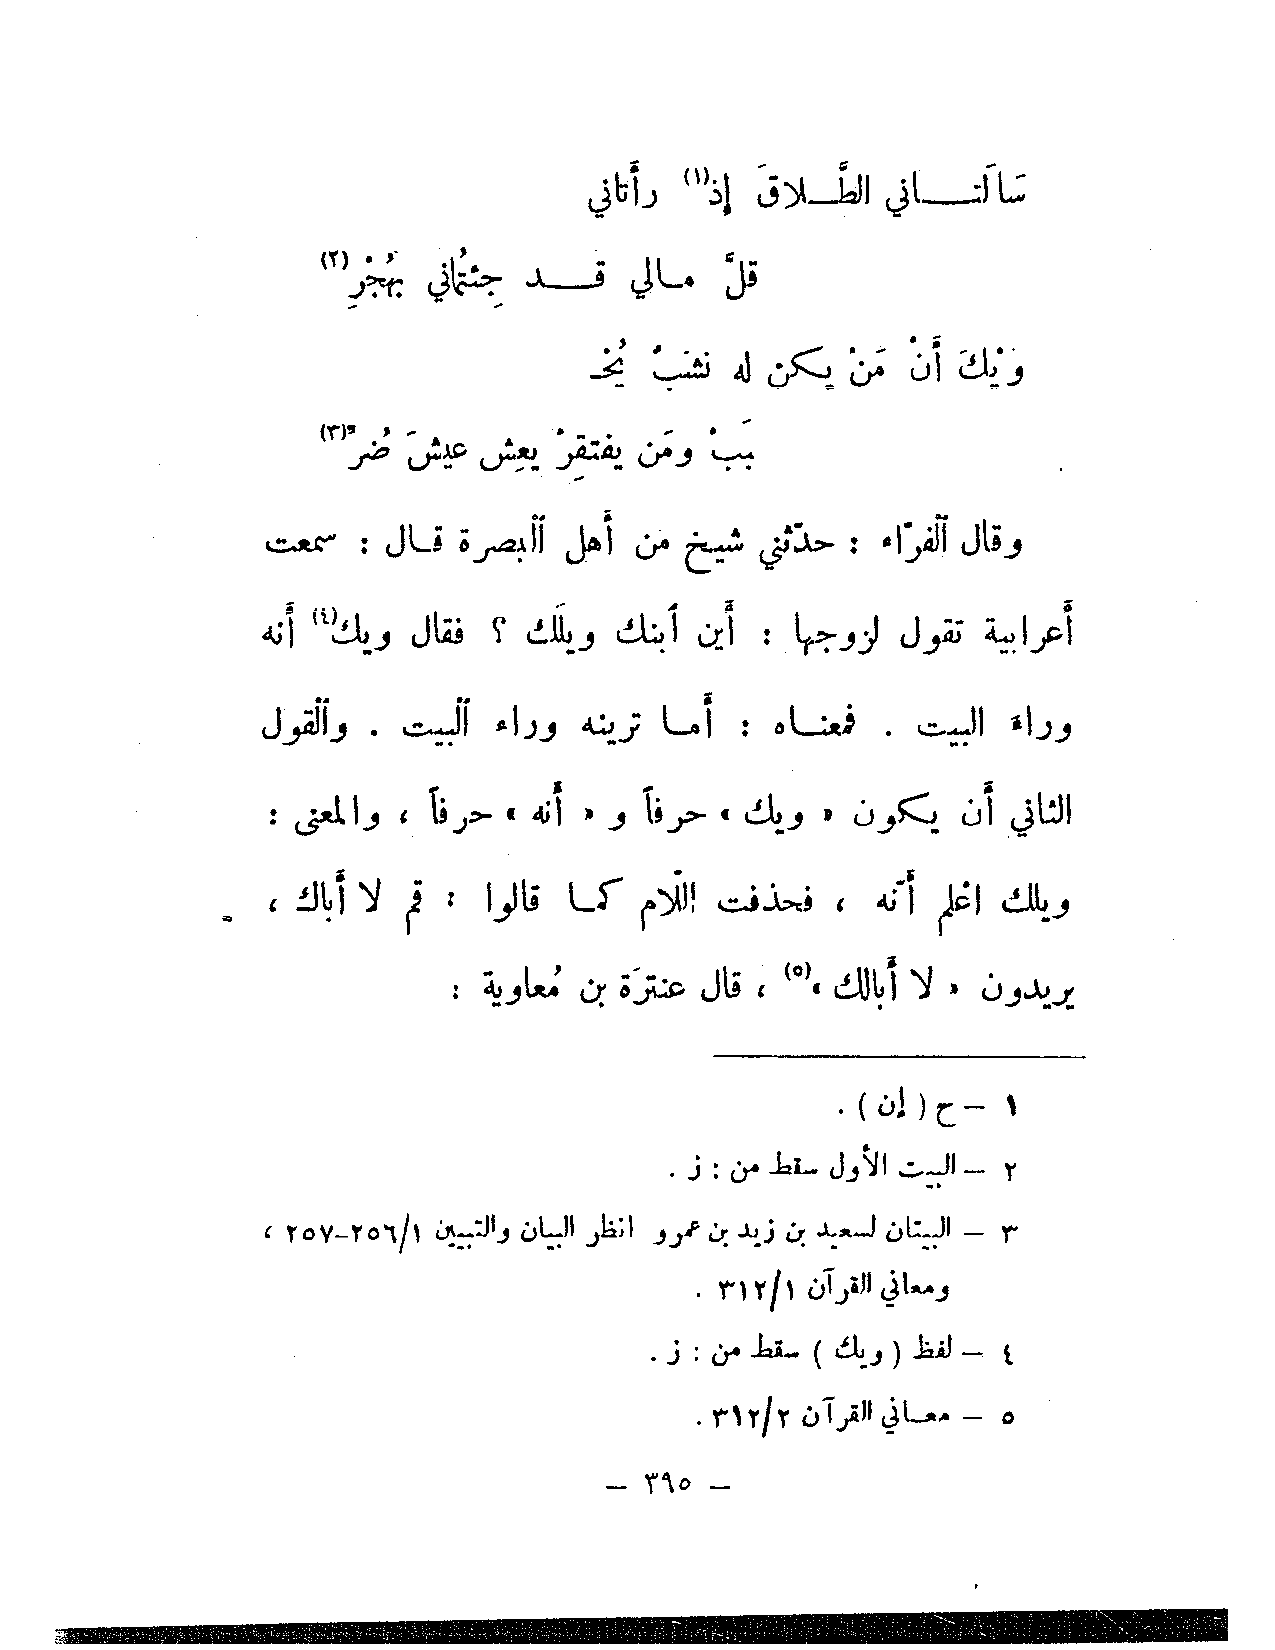 سَاَلتــاني الطَّــلاقَ إِذ(١) رأَتاني
قلَّ مـالي قــد جِئتُماني بِهُجْرِ(٢)
وَيْكَ أَنْ مَنْ يكن له نشَبٌ يُحْـ
بَبْ ومَن يفتقِرْ يعِش عيشَ ضُرِّ(٣)
وقال ٱلفرّاء : حدّثني شيخ من أَهل ٱلبصرة قـال : سمعت
أَعرابية تقول لزوجها : أَين ٱبنك ويلَك ؟ فقال ويك(٤) أَنه
وراء البيت . فمعنـاه : أَمـا ترينه وراء ٱلبيت . وٱلقول
الثاني أَن يكون « ويك » حرفاً و « أَنه » حرفاً ، والمعنى :
ويلك اعْلم أَنّه ، فحذفت اللّام كمـا قالوا : قم لا أَباك ،
يريدون « لا أَبالك »(٥) ، قال عنترَة بن مُعاوية :
١ – ح ( إن ) .
٢ – البيت الأول سقط من : ز .
٣ – البيتان لسعيد بن زيد بن عمرو انظر البيان والتبيين ٢٥٦/١–٢٥٧ ،
ومعاني القرآن ٣١٢/١ .
٤ – لفظ ( ويك ) سقط من : ز .
٥ – معـاني القرآن ٣١٢/٢ .
– ٣٩٥ –